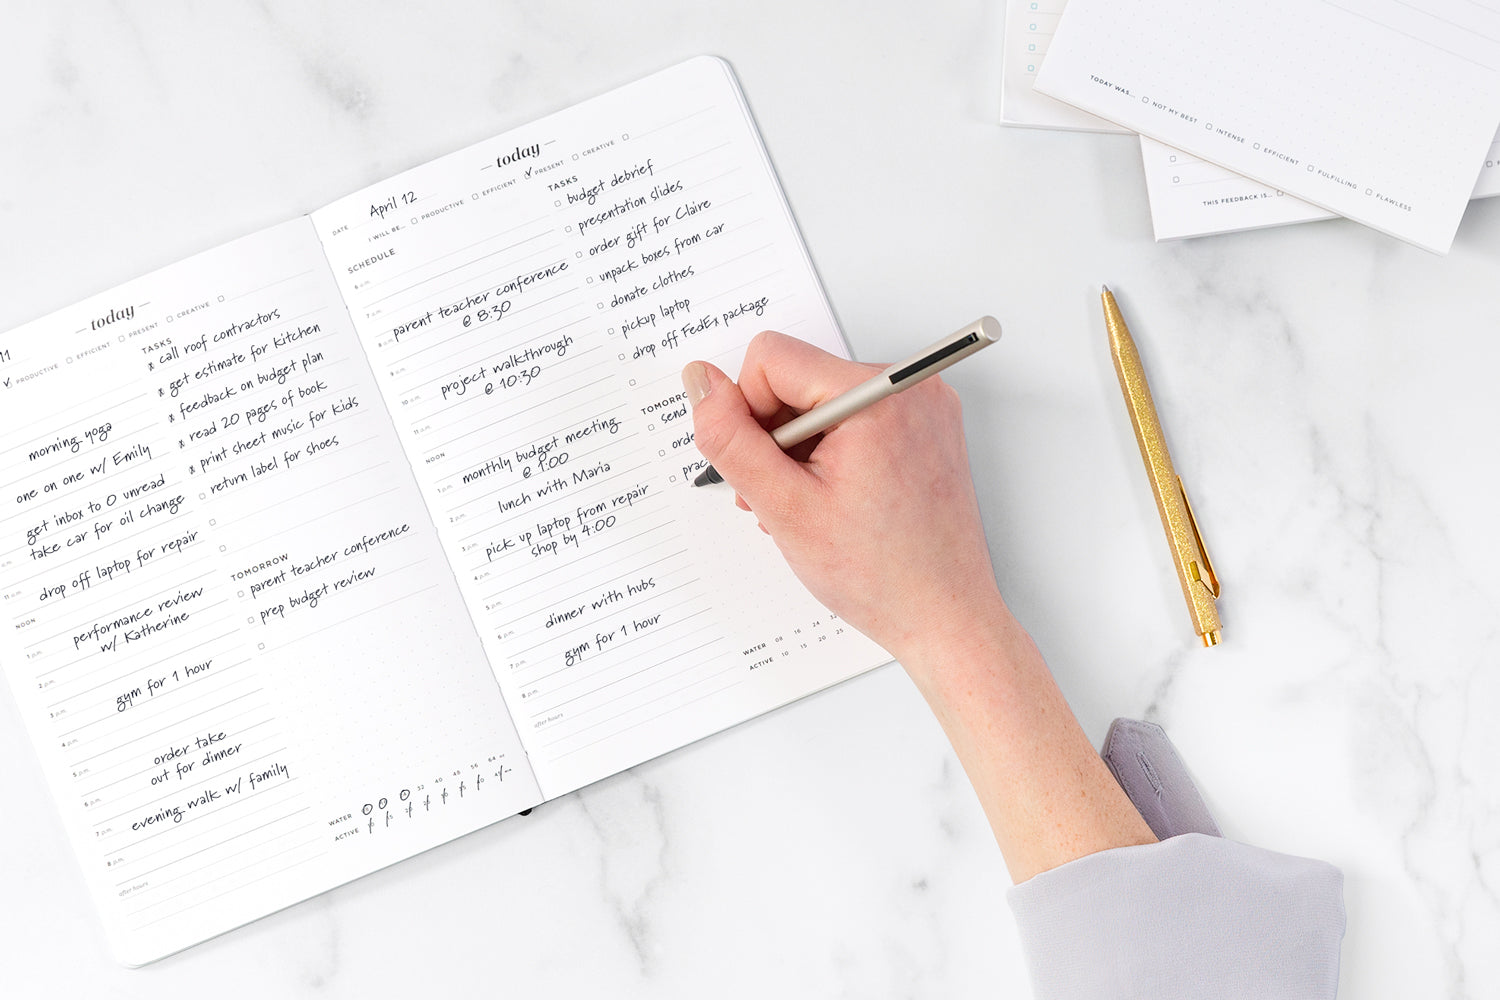 — today —
11
PRODUCTIVE EFFICIENT PRESENT CREATIVE
TASKS
x call roof contractors
x get estimate for kitchen
x feedback on budget plan
x read 20 pages of book
x print sheet music for kids
return label for shoes
morning yoga
one on one w/ Emily
get inbox to 0 unread
take car for oil change
drop off laptop for repair
11 a.m.
NOON
performance review
w/ Katherine
1 p.m.
2 p.m.
gym for 1 hour
3 p.m.
4 p.m.
order take
out for dinner
5 p.m.
6 p.m.
evening walk w/ family
7 p.m.
8 p.m.
after hours
TOMORROW
parent teacher conference
prep budget review
WATER 32 40 48 56 64
ACTIVE
— today —
DATE April 12
I WILL BE... PRODUCTIVE EFFICIENT PRESENT CREATIVE
SCHEDULE
6 a.m.
7 a.m.
parent teacher conference
@ 8:30
8 a.m.
9 a.m.
project walkthrough
@ 10:30
10 a.m.
11 a.m.
NOON
monthly budget meeting
@ 1:00
1 p.m.
lunch with Maria
2 p.m.
pick up laptop from repair
shop by 4:00
3 p.m.
4 p.m.
5 p.m.
dinner with hubs
6 p.m.
gym for 1 hour
7 p.m.
8 p.m.
after hours
TASKS
budget debrief
presentation slides
order gift for Claire
unpack boxes from car
donate clothes
pickup laptop
drop off FedEx package
TOMORRO
send
orde
prac
WATER 08 16 24 32
ACTIVE 10 15 20 25
TODAY WAS... NOT MY BEST INTENSE EFFICIENT FULFILLING FLAWLESS
THIS FEEDBACK IS...